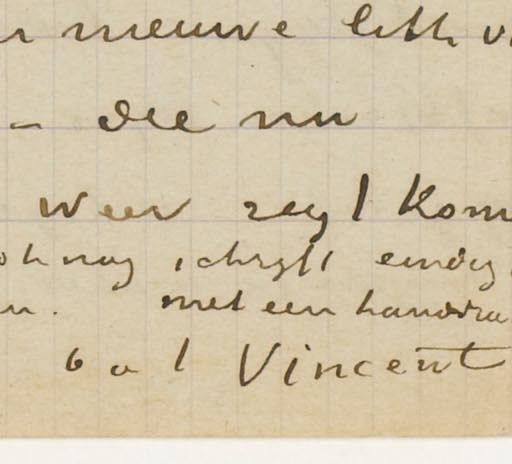 nieuwe lith
– die nu
weer zegt kom
nog schrijft eindig
met een handdru
t. à t. Vincent